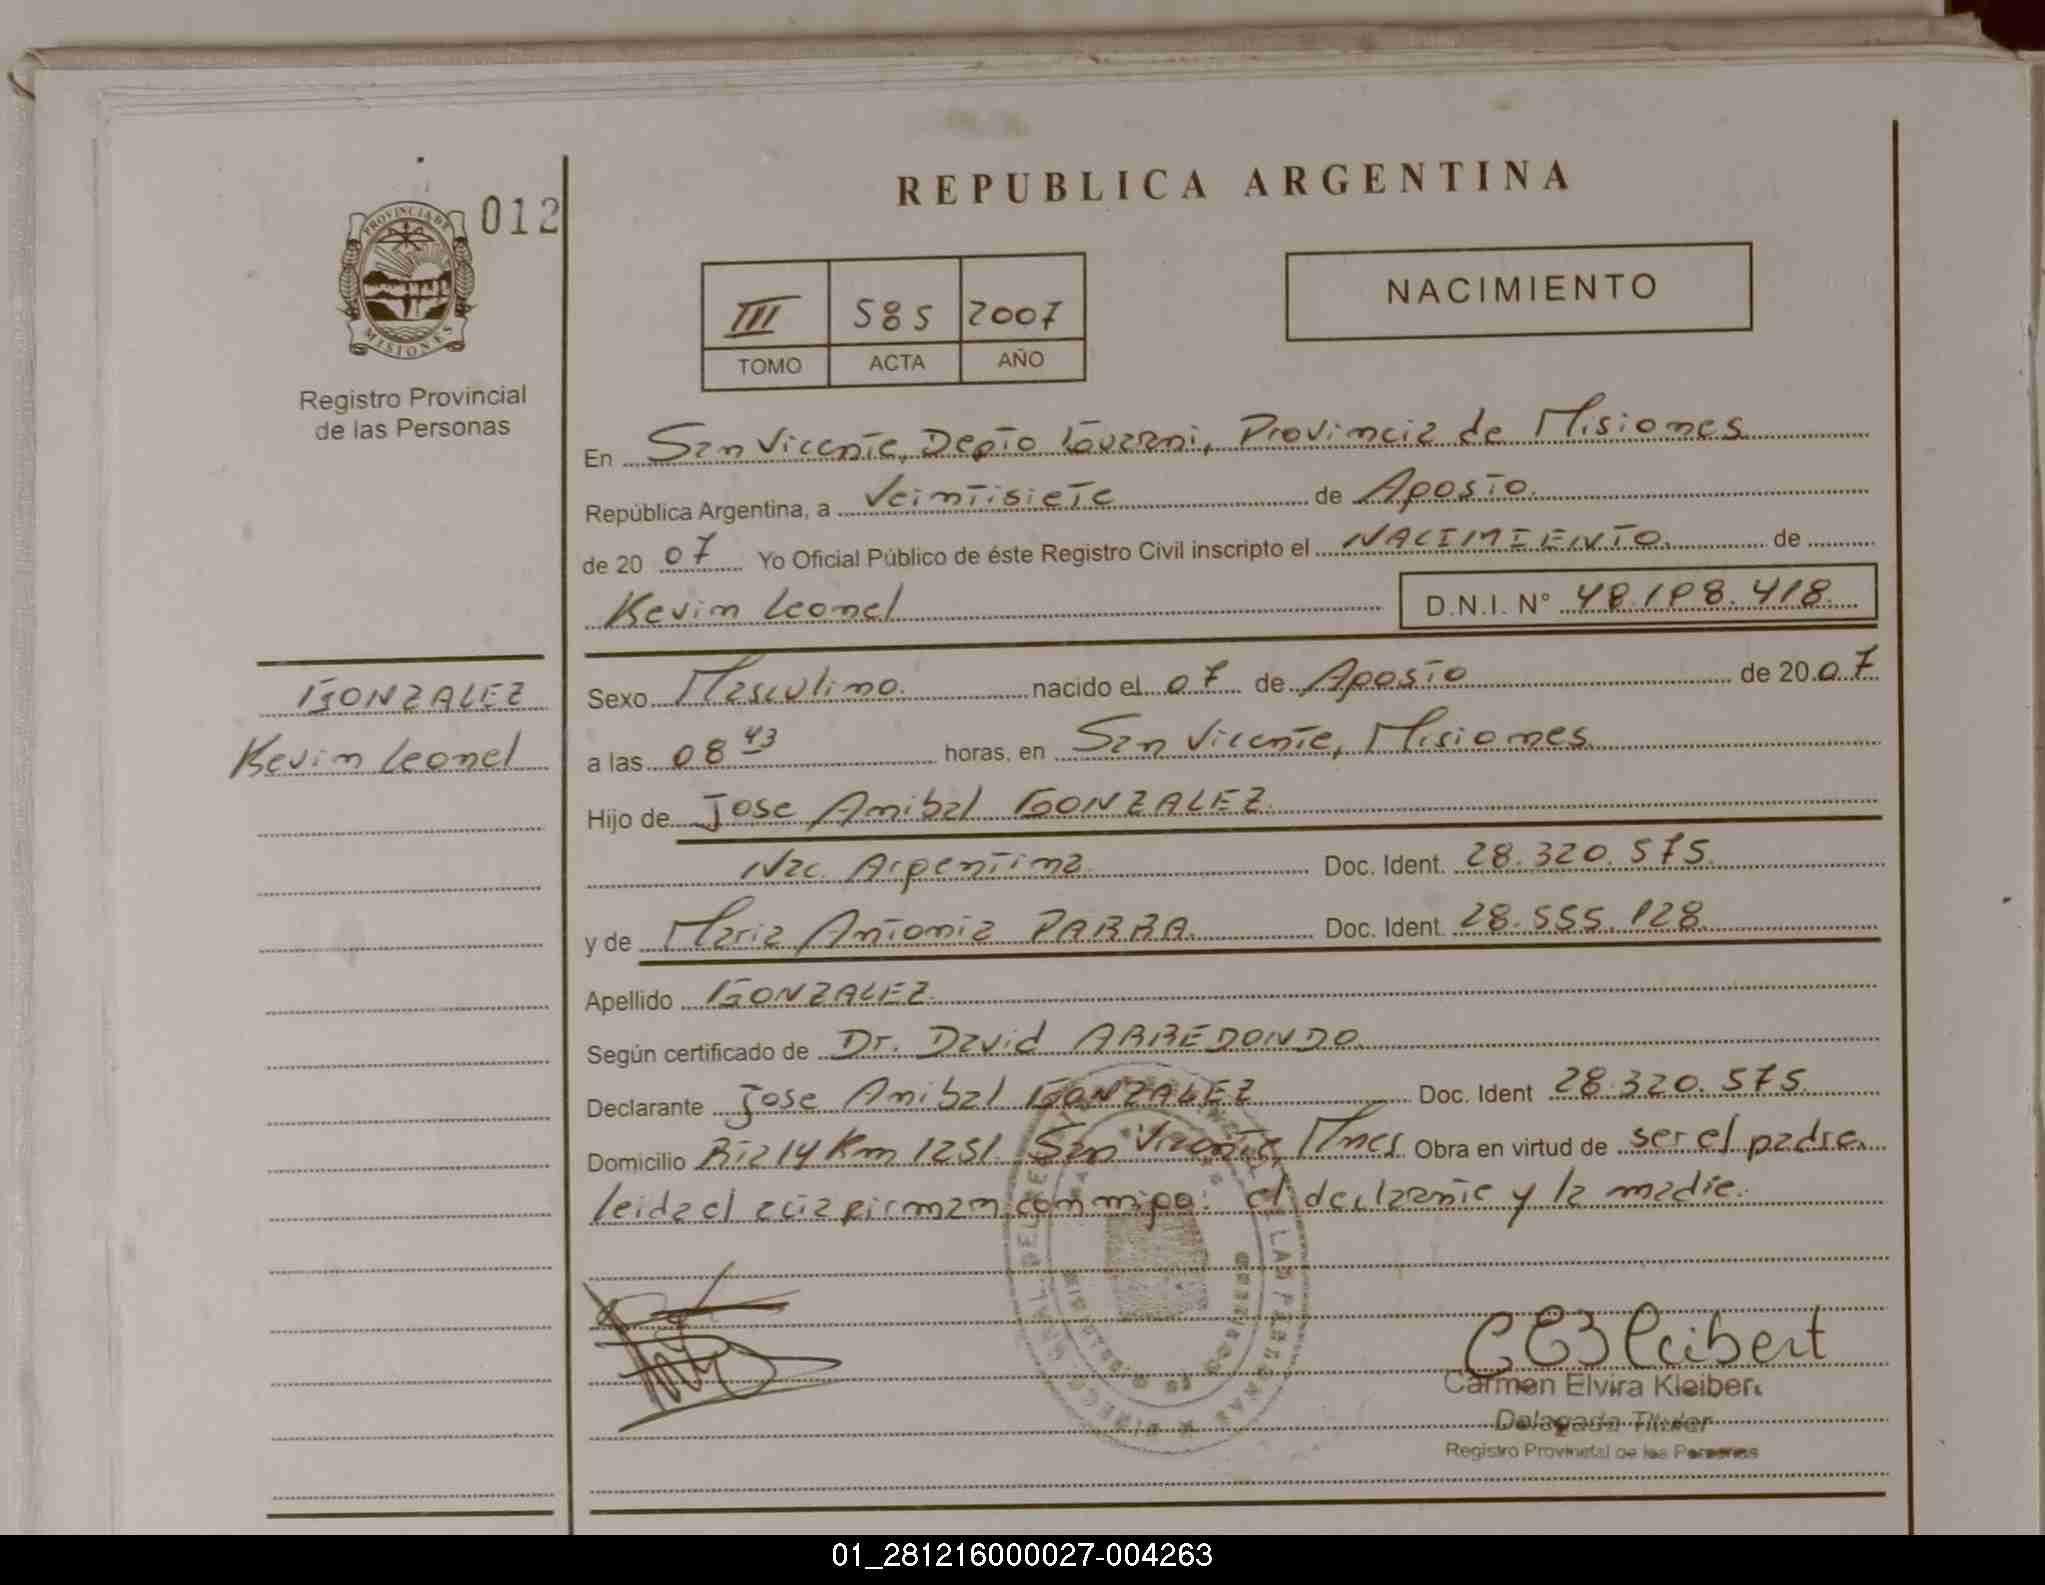 012
PROVINCIA DE
MISIONES
Registro Provincial
de las Personas
REPUBLICA ARGENTINA
III 585 2007
TOMO ACTA AÑO
NACIMIENTO
En San Vicente, Depto Guarani, Provincia de Misiones
República Argentina, a Veintisiete de Agosto
de 20 07 Yo Oficial Público de éste Registro Civil inscripto el NACIMIENTO de
Kevin Leonel D.N.I. Nº 48.198.418
GONZALEZ
Kevin Leonel
Sexo Masculino nacido el 07 de Agosto de 20 07
a las 08 43 horas, en San Vicente, Misiones
Hijo de Jose Anibal GONZALEZ
Nac. Argentina Doc. Ident. 28.320.575
y de Maria Antonia PARRA Doc. Ident. 28.555.128
Apellido GONZALEZ
Según certificado de Dr. David ARREDONDO
Declarante Jose Anibal GONZALEZ Doc. Ident 28.320.575
Domicilio Rta 14 Km 1251. San Vicente, Mnes Obra en virtud de ser el padre.
leida el acta firman conmigo: el declarante y la madre.
CEKleibert
Carmen Elvira Kleibert
Delegada Titular
Registro Provincial de las Personas
01_281216000027-004263